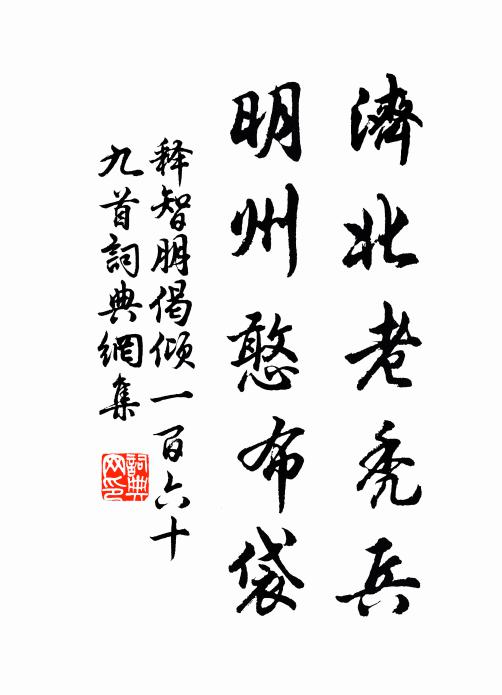 濟北老禿兵
明州憨布袋
释智朋偈傾一百六十
九首詞典網集
詞典網印